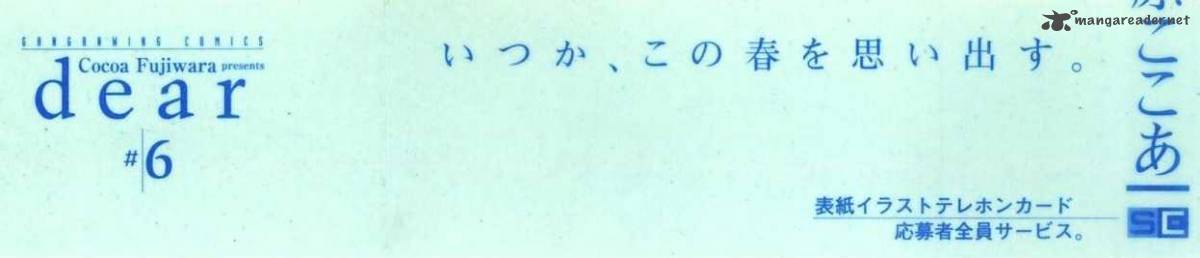 GANGANWING COMICS
Cocoa Fujiwara presents
dear
#6
いつか、この春を思い出す。
表紙イラストテレホンカード
応募者全員サービス。
原ここあ
SE
mangareader.net